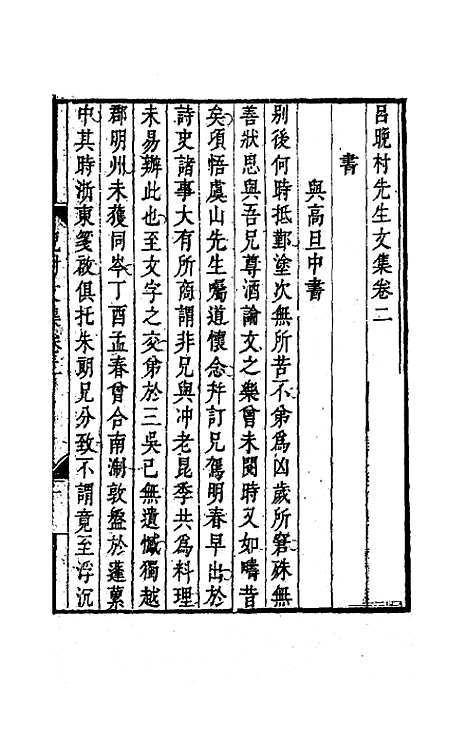 呂晚村先生文集卷二
書
與高旦中書
别後何時抵鄞塗次無所苦不弟爲凶歲所窘殊無
善狀思與吾兄尊酒論文之樂曾未閱時又如疇昔
矣頃晤虞山先生囑道懷念并訂兄駕明春早出於
詩史諸事大有所商謂非兄與冲老昆季共爲料理
未易辦此也至文字之交弟於三吳已無遺憾獨越
郡明州未獲同岑丁酉孟春曾合南浙敦盤於蓬藁
中其時浙東箋啟俱托朱朗兄分致不謂竟至浮沉
晚村文集卷二
一